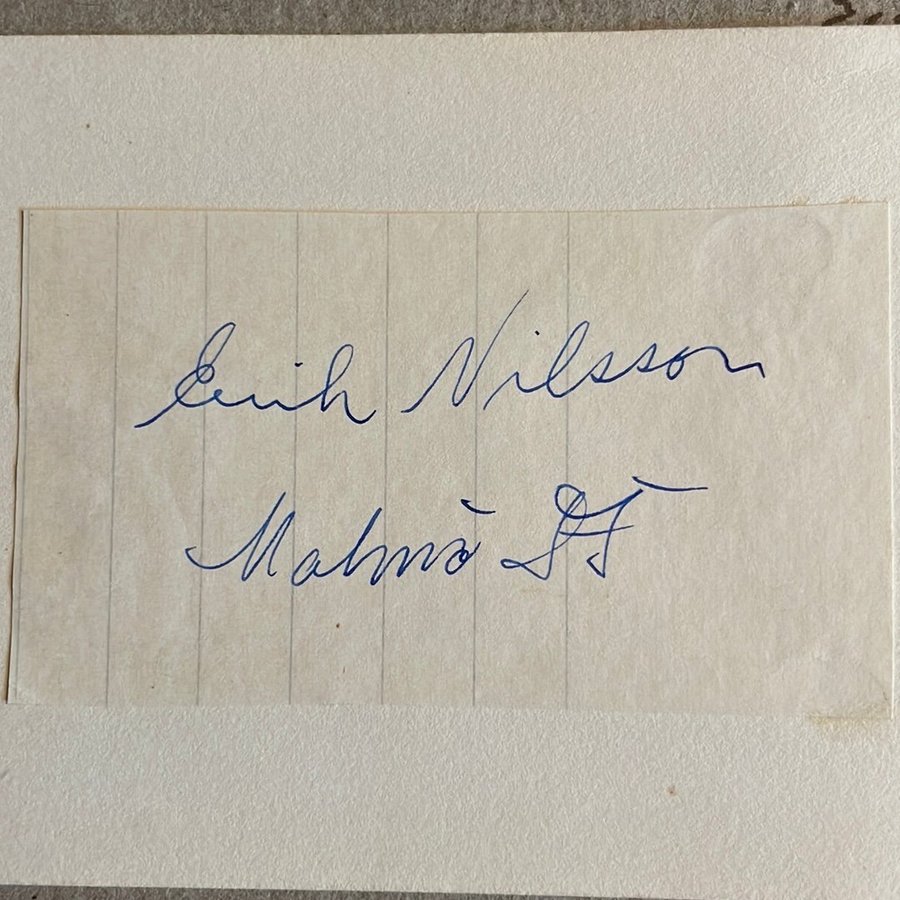 Erik Nilsson
Malmö FF